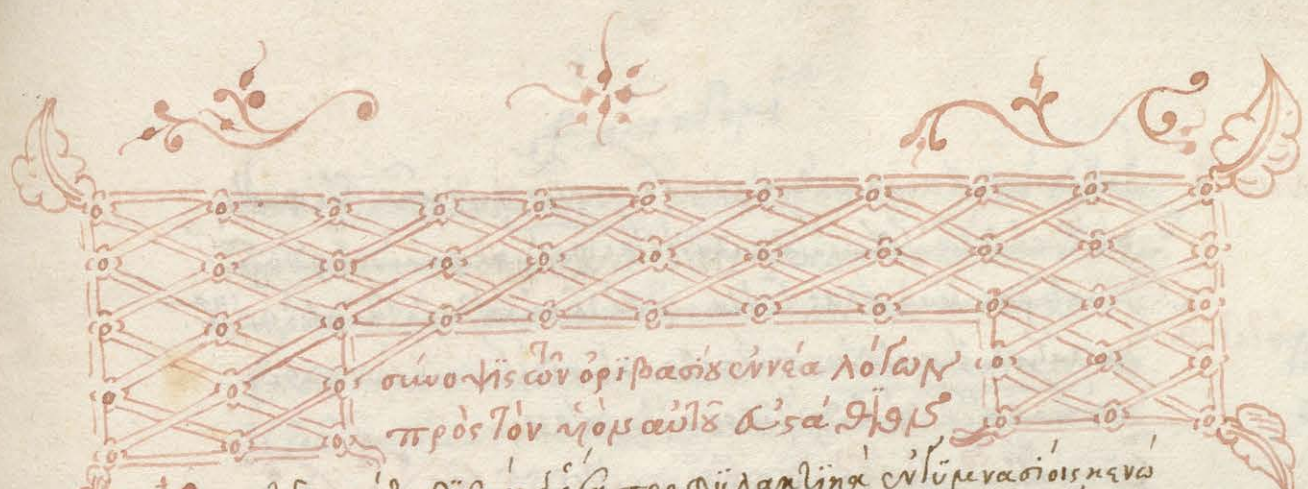 σύνοψις τῶν ὀριβασίου ἐννέα λόγων
πρὸς τὸν υἱὸν αὐτοῦ εὐστάθιον
προφυλακτικὰ ἐν γυμνασίοις κενώ